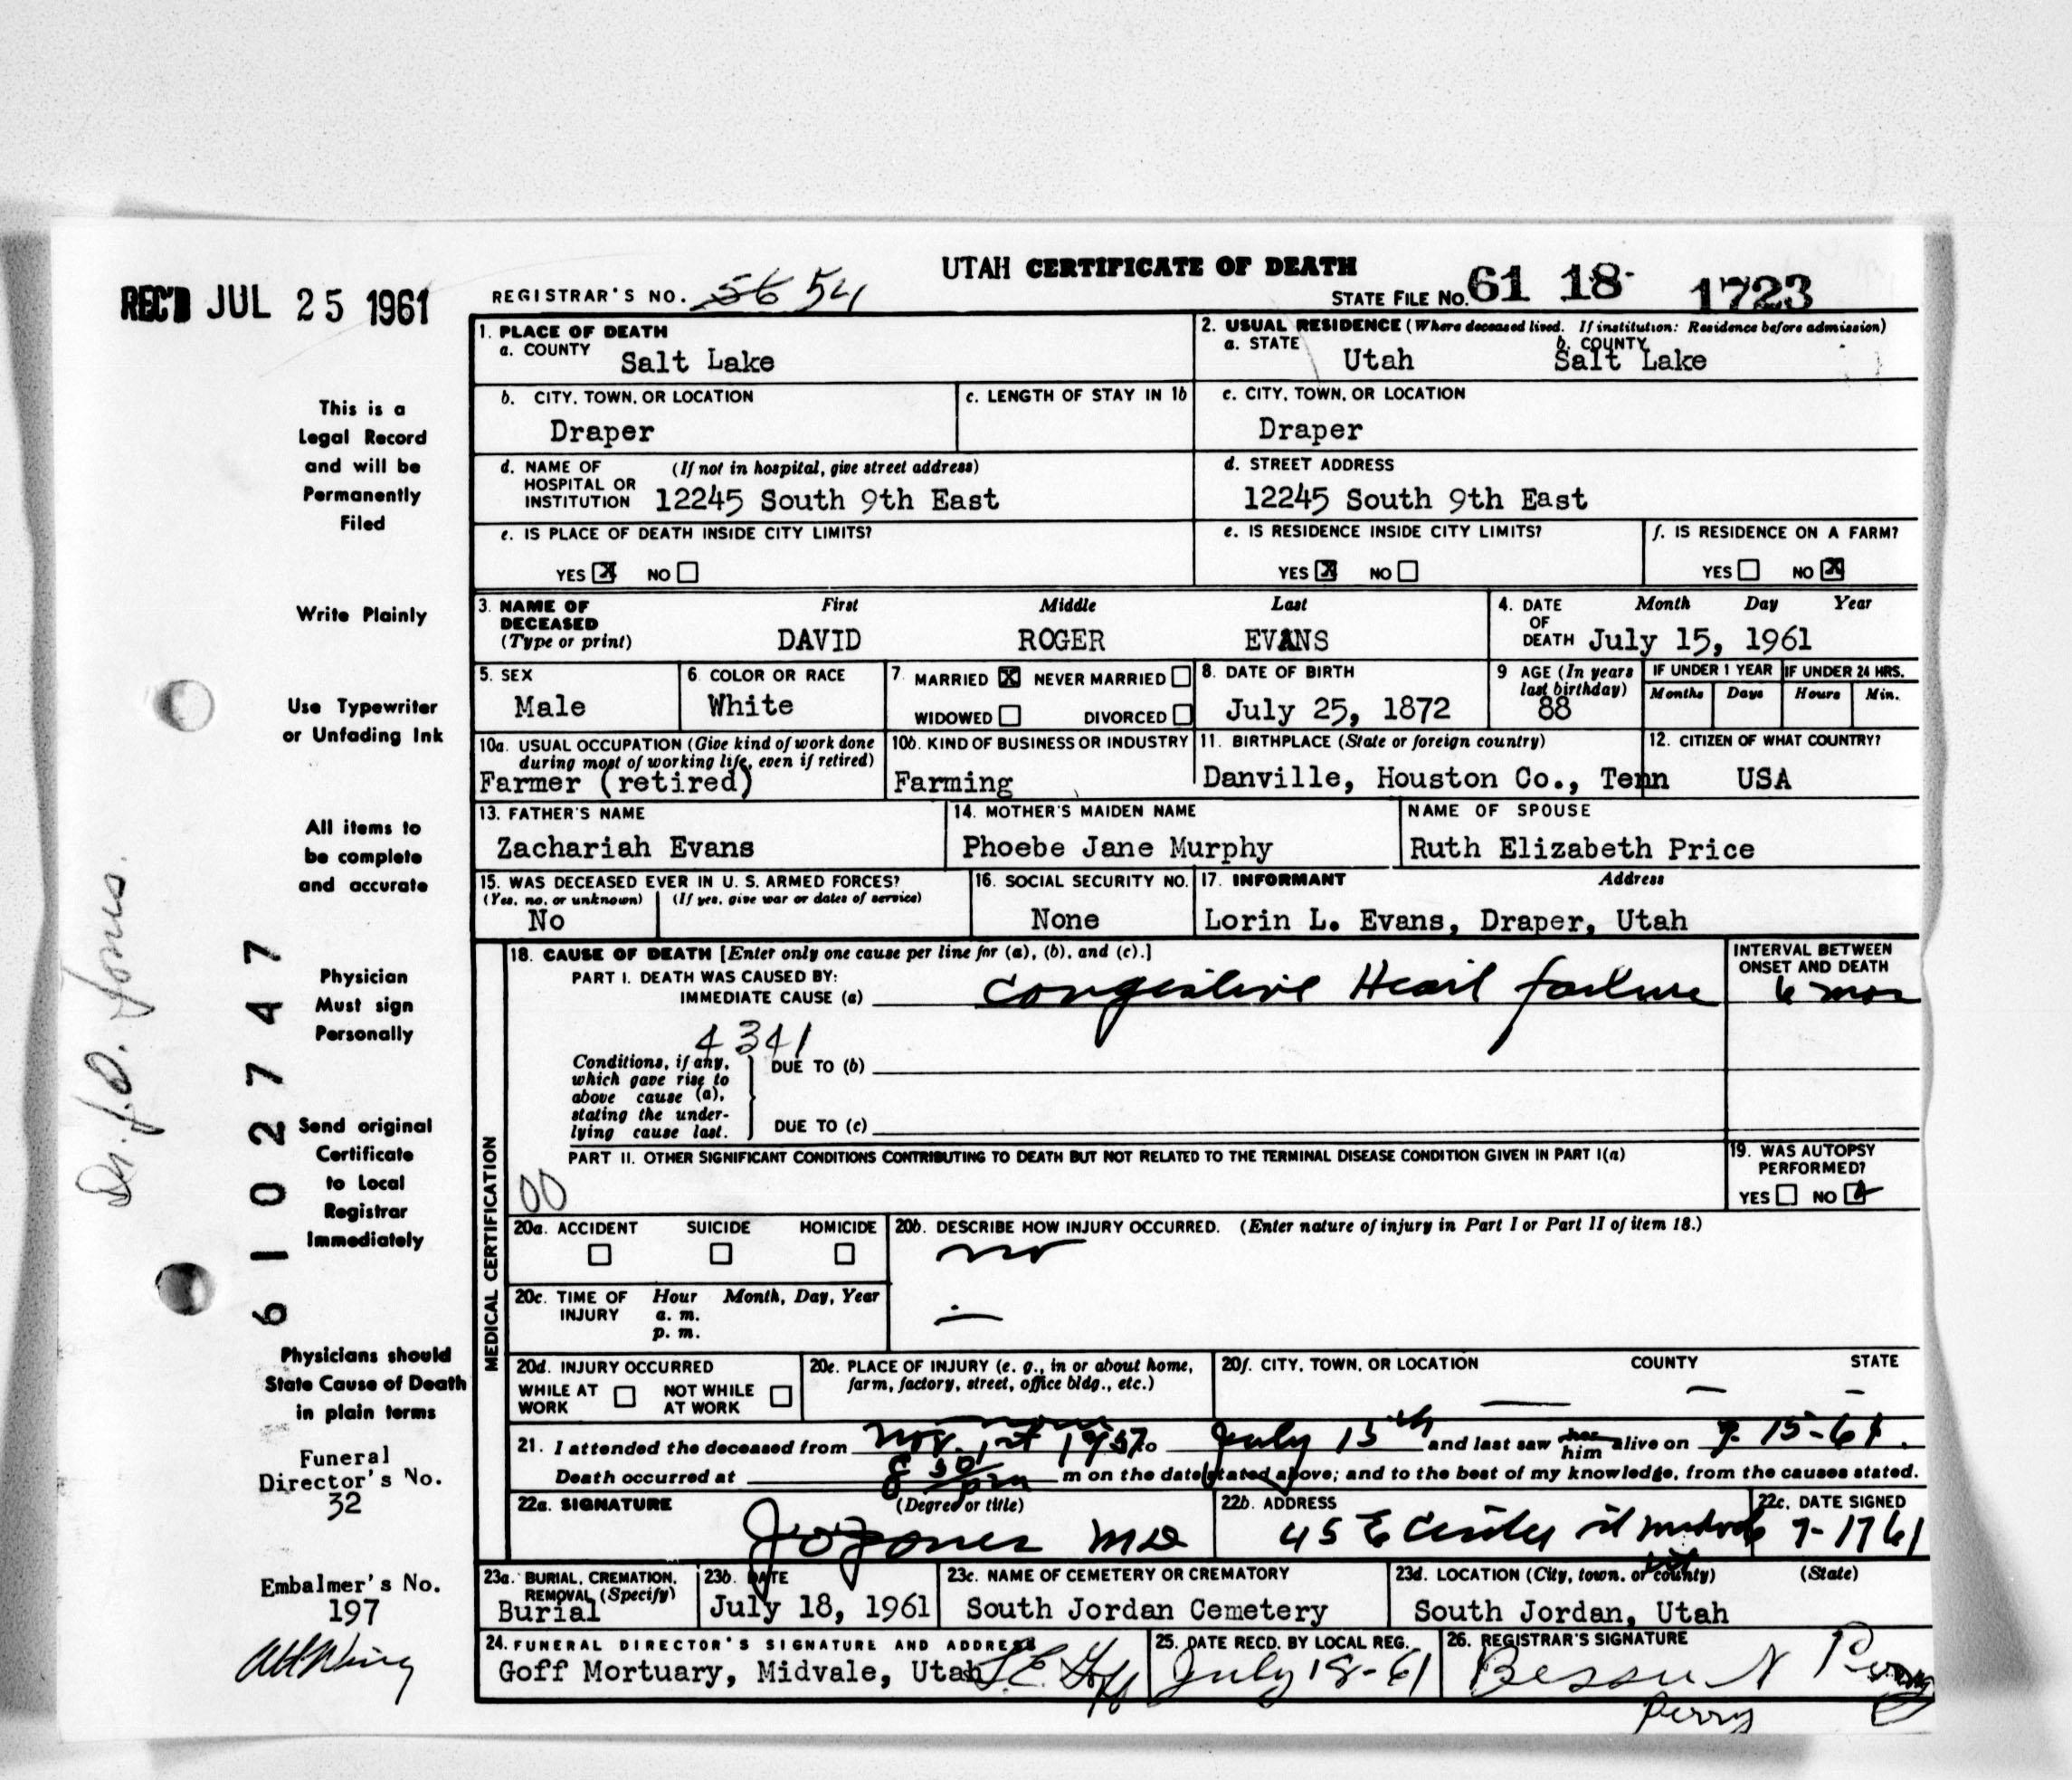 UTAH CERTIFICATE OF DEATH
REC'D JUL 25 1961
REGISTRAR'S NO. 56 54
STATE FILE NO. 61 18 1723
This is a
Legal Record
and will be
Permanently
Filed
Write Plainly
Use Typewriter
or Unfading Ink
All items to
be complete
and accurate
Physician
Must sign
Personally
Send original
Certificate
to Local
Registrar
Immediately
Physicians should
State Cause of Death
in plain terms
Funeral
Director's No.
32
Embalmer's No.
197
Dr. J.O. Jones.
61027747
1. PLACE OF DEATH
a. COUNTY Salt Lake
2. USUAL RESIDENCE (Where deceased lived. If institution: Residence before admission)
a. STATE Utah b. COUNTY Salt Lake
b. CITY, TOWN, OR LOCATION Draper
c. LENGTH OF STAY IN 1b
c. CITY, TOWN, OR LOCATION Draper
d. NAME OF HOSPITAL OR INSTITUTION (If not in hospital, give street address) 12245 South 9th East
d. STREET ADDRESS 12245 South 9th East
e. IS PLACE OF DEATH INSIDE CITY LIMITS?
YES X NO
e. IS RESIDENCE INSIDE CITY LIMITS?
YES X NO
f. IS RESIDENCE ON A FARM?
YES NO X
3. NAME OF DECEASED (Type or print)
First Middle Last
DAVID ROGER EVANS
4. DATE OF DEATH Month Day Year
July 15, 1961
5. SEX Male
6. COLOR OR RACE White
7. MARRIED X NEVER MARRIED
WIDOWED DIVORCED
8. DATE OF BIRTH July 25, 1872
9 AGE (In years last birthday) 88
IF UNDER 1 YEAR Months Days
IF UNDER 24 HRS. Hours Min.
10a. USUAL OCCUPATION (Give kind of work done during most of working life, even if retired)
Farmer (retired)
10b. KIND OF BUSINESS OR INDUSTRY
Farming
11. BIRTHPLACE (State or foreign country)
Danville, Houston Co., Tenn
12. CITIZEN OF WHAT COUNTRY?
USA
13. FATHER'S NAME
Zachariah Evans
14. MOTHER'S MAIDEN NAME
Phoebe Jane Murphy
NAME OF SPOUSE
Ruth Elizabeth Price
15. WAS DECEASED EVER IN U. S. ARMED FORCES?
(Yes, no, or unknown) (If yes, give war or dates of service)
No
16. SOCIAL SECURITY NO.
None
17. INFORMANT Address
Lorin L. Evans, Draper, Utah
MEDICAL CERTIFICATION
18. CAUSE OF DEATH [Enter only one cause per line for (a), (b), and (c).]
PART I. DEATH WAS CAUSED BY:
IMMEDIATE CAUSE (a) Congestive Heart failure
INTERVAL BETWEEN ONSET AND DEATH
6 mos
4341
Conditions, if any, which gave rise to above cause (a), stating the underlying cause last.
DUE TO (b)
DUE TO (c)
PART II. OTHER SIGNIFICANT CONDITIONS CONTRIBUTING TO DEATH BUT NOT RELATED TO THE TERMINAL DISEASE CONDITION GIVEN IN PART I(a)
00
19. WAS AUTOPSY PERFORMED?
YES NO
20a. ACCIDENT SUICIDE HOMICIDE
20b. DESCRIBE HOW INJURY OCCURRED. (Enter nature of injury in Part I or Part II of item 18.)
no
20c. TIME OF INJURY Hour Month, Day, Year
a. m.
p. m.
20d. INJURY OCCURRED
WHILE AT WORK NOT WHILE AT WORK
20e. PLACE OF INJURY (e. g., in or about home, farm, factory, street, office bldg., etc.)
20f. CITY, TOWN, OR LOCATION COUNTY STATE
21. I attended the deceased from Nov. 1st 1957 to July 15th and last saw her him alive on 7-15-61.
Death occurred at 8 30 pm m on the date stated above; and to the best of my knowledge, from the causes stated.
22a. SIGNATURE (Degree or title)
JO Jones MD
22b. ADDRESS
45 E Center st Midvale
22c. DATE SIGNED
7-1761
23a. BURIAL, CREMATION, REMOVAL (Specify)
Burial
23b. DATE
July 18, 1961
23c. NAME OF CEMETERY OR CREMATORY
South Jordan Cemetery
23d. LOCATION (City, town, or county) (State)
South Jordan, Utah
24. FUNERAL DIRECTOR'S SIGNATURE AND ADDRESS
Goff Mortuary, Midvale, Utah
25. DATE RECD. BY LOCAL REG.
July 18-61
26. REGISTRAR'S SIGNATURE
Bessie N Perry
Perry